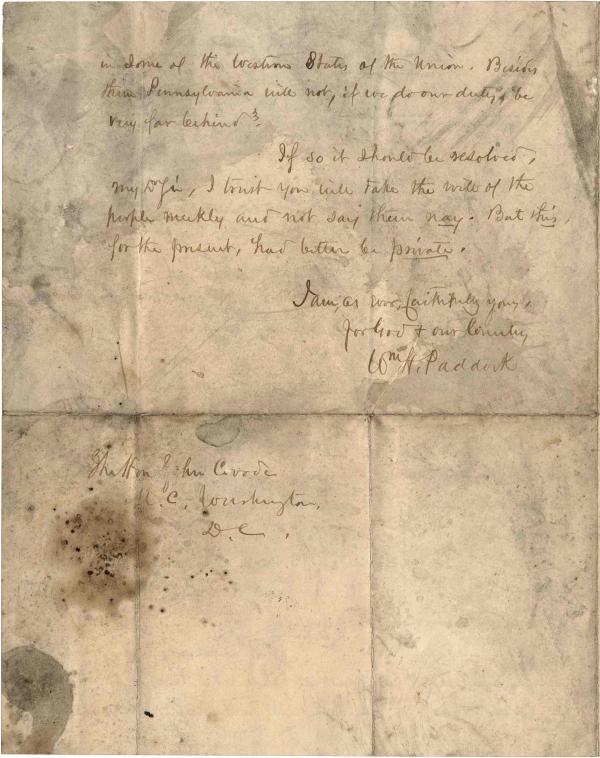 in some of the Western States of the Union. Besides
this Pennsylvania will not, if we do our duty, be
very far behind.
If so it should be resolved,
my Dr Sir, I trust you will take the will of the
people meekly and not say them nay. But this,
for the present, had better be private.
I am, as ever, faithfully yours,
for God & our Country,
Wm H. Paddock
The Hon John Covode
M.C. Washington,
D.C.